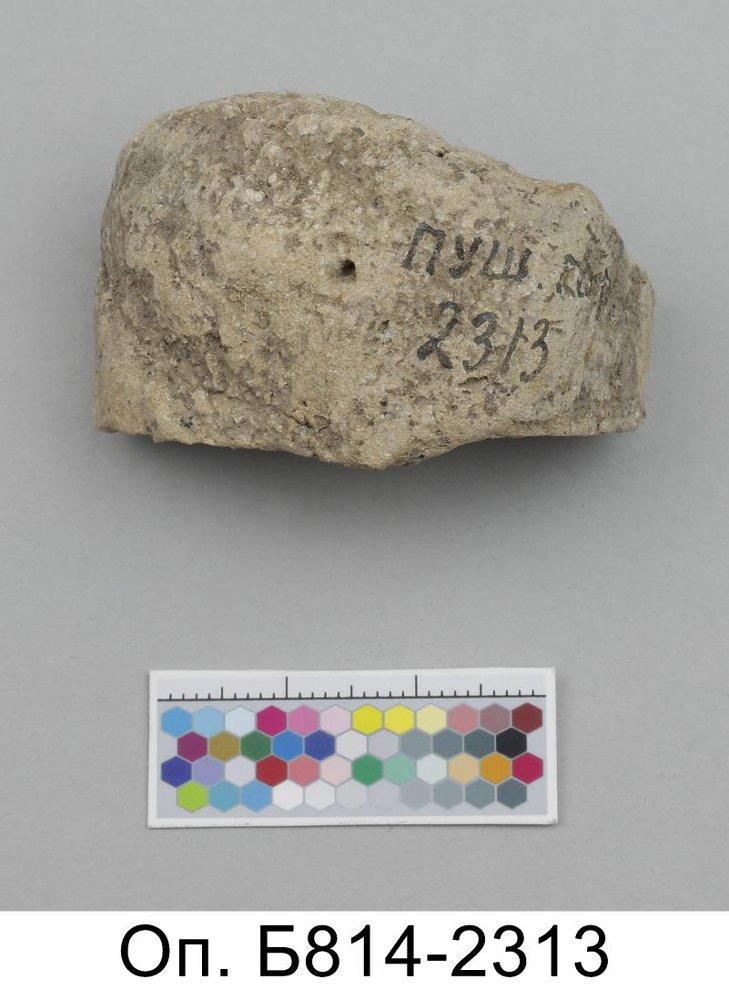 ПУШ.
2313
Оп. Б814-2313